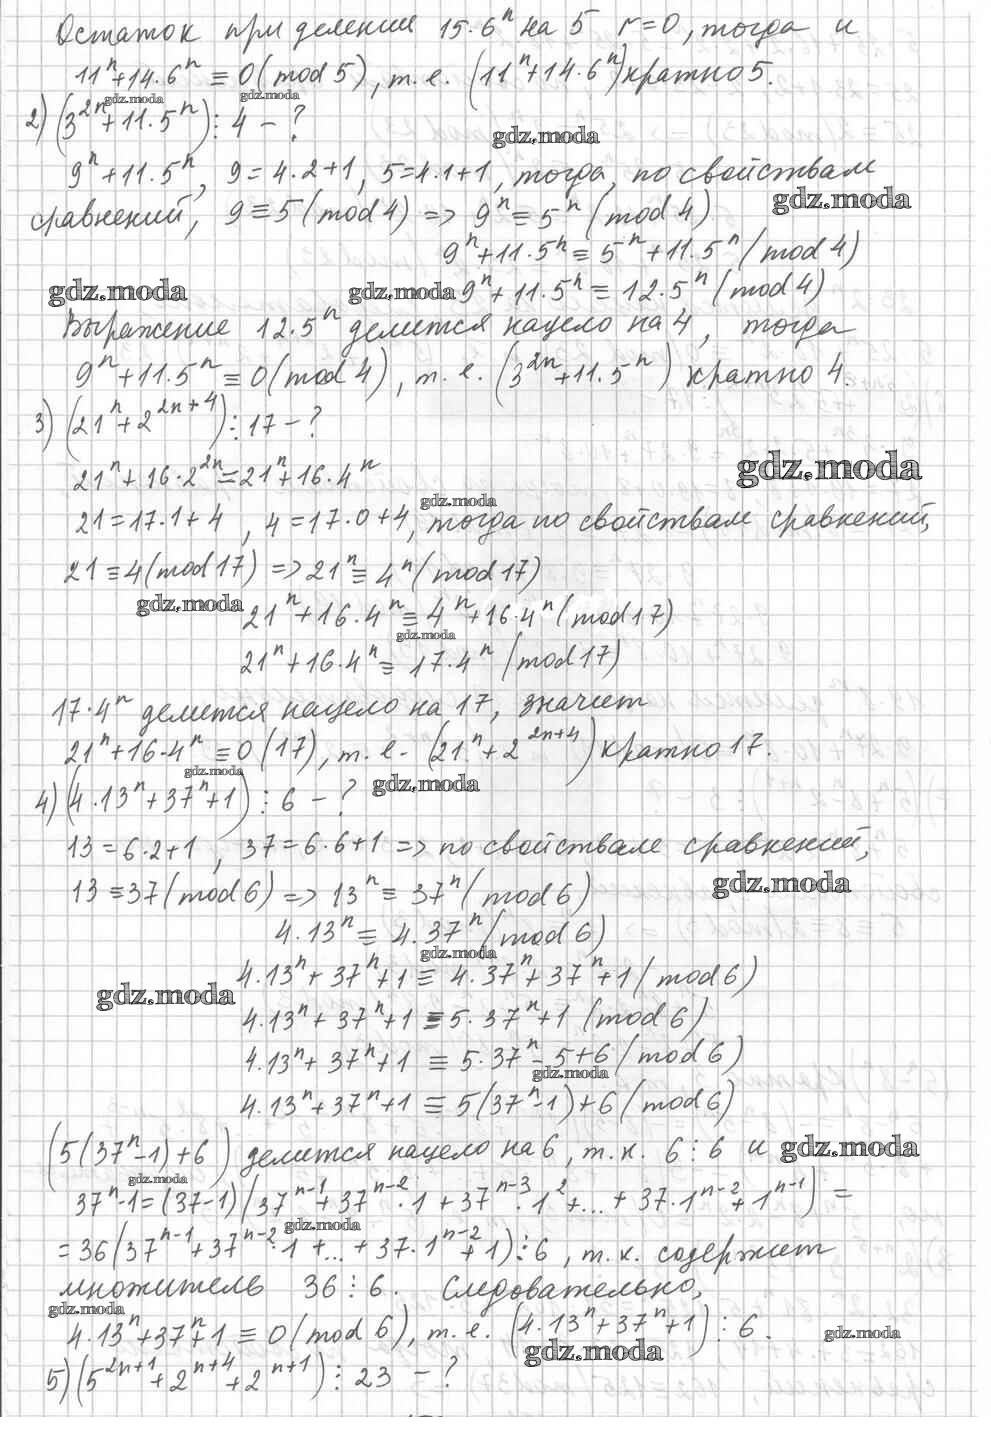 Остаток при делении 15·6ⁿ на 5 r=0, тогда и
11ⁿ+14·6ⁿ ≡ 0(mod 5), т.е. (11ⁿ+14·6ⁿ) кратно 5.
gdz.moda gdz.moda
2) (3²ⁿ+11·5ⁿ)⋮4 - ?
gdz.moda
9ⁿ+11·5ⁿ, 9=4·2+1, 5=4·1+1, тогда, по свойствам
gdz.moda
сравнений, 9≡5(mod 4) => 9ⁿ≡5ⁿ(mod 4)
9ⁿ+11·5ⁿ≡5ⁿ+11·5ⁿ(mod 4)
gdz.moda gdz.moda 9ⁿ+11·5ⁿ≡12·5ⁿ(mod 4)
Выражение 12·5ⁿ делится нацело на 4, тогда
9ⁿ+11·5ⁿ≡0(mod 4), т.е. (3²ⁿ+11·5ⁿ) кратно 4.
3) (21ⁿ+2²ⁿ⁺⁴)⋮17 - ?
gdz.moda
21ⁿ+16·2²ⁿ=21ⁿ+16·4ⁿ
gdz.moda
21=17·1+4, 4=17·0+4, тогда по свойствам сравнений,
21≡4(mod 17) => 21ⁿ≡4ⁿ(mod 17)
gdz.moda
21ⁿ+16·4ⁿ≡4ⁿ+16·4ⁿ(mod 17)
gdz.moda
21ⁿ+16·4ⁿ≡17·4ⁿ(mod 17)
17·4ⁿ делится нацело на 17, значит
21ⁿ+16·4ⁿ≡0(17), т.е. (21ⁿ+2²ⁿ⁺⁴) кратно 17.
gdz.moda gdz.moda
4) (4·13ⁿ+37ⁿ+1)⋮6 - ?
13=6·2+1, 37=6·6+1 => по свойствам сравнений,
13≡37(mod 6) => 13ⁿ≡37ⁿ(mod 6)
gdz.moda
4·13ⁿ≡4·37ⁿ(mod 6)
gdz.moda
4·13ⁿ+37ⁿ+1≡4·37ⁿ+37ⁿ+1(mod 6)
gdz.moda
4·13ⁿ+37ⁿ+1≡5·37ⁿ+1(mod 6)
4·13ⁿ+37ⁿ+1≡5·37ⁿ-5+6(mod 6)
gdz.moda
4·13ⁿ+37ⁿ+1≡5(37ⁿ-1)+6(mod 6)
(5(37ⁿ-1)+6) делится нацело на 6, т.к. 6⋮6 и
gdz.moda
gdz.moda
37ⁿ-1=(37-1)(37ⁿ⁻¹+37ⁿ⁻²·1+37ⁿ⁻³·1²+...+37·1ⁿ⁻²+1ⁿ⁻¹)=
gdz.moda
=36(37ⁿ⁻¹+37ⁿ⁻²·1+...+37·1ⁿ⁻²+1)⋮6, т.к. содержит
множитель 36⋮6. Следовательно,
gdz.moda
4·13ⁿ+37ⁿ+1≡0(mod 6), т.е. (4·13ⁿ+37ⁿ+1)⋮6.
gdz.moda gdz.moda
5) (5²ⁿ⁺¹+2ⁿ⁺⁴+2ⁿ⁺¹)⋮23 - ?